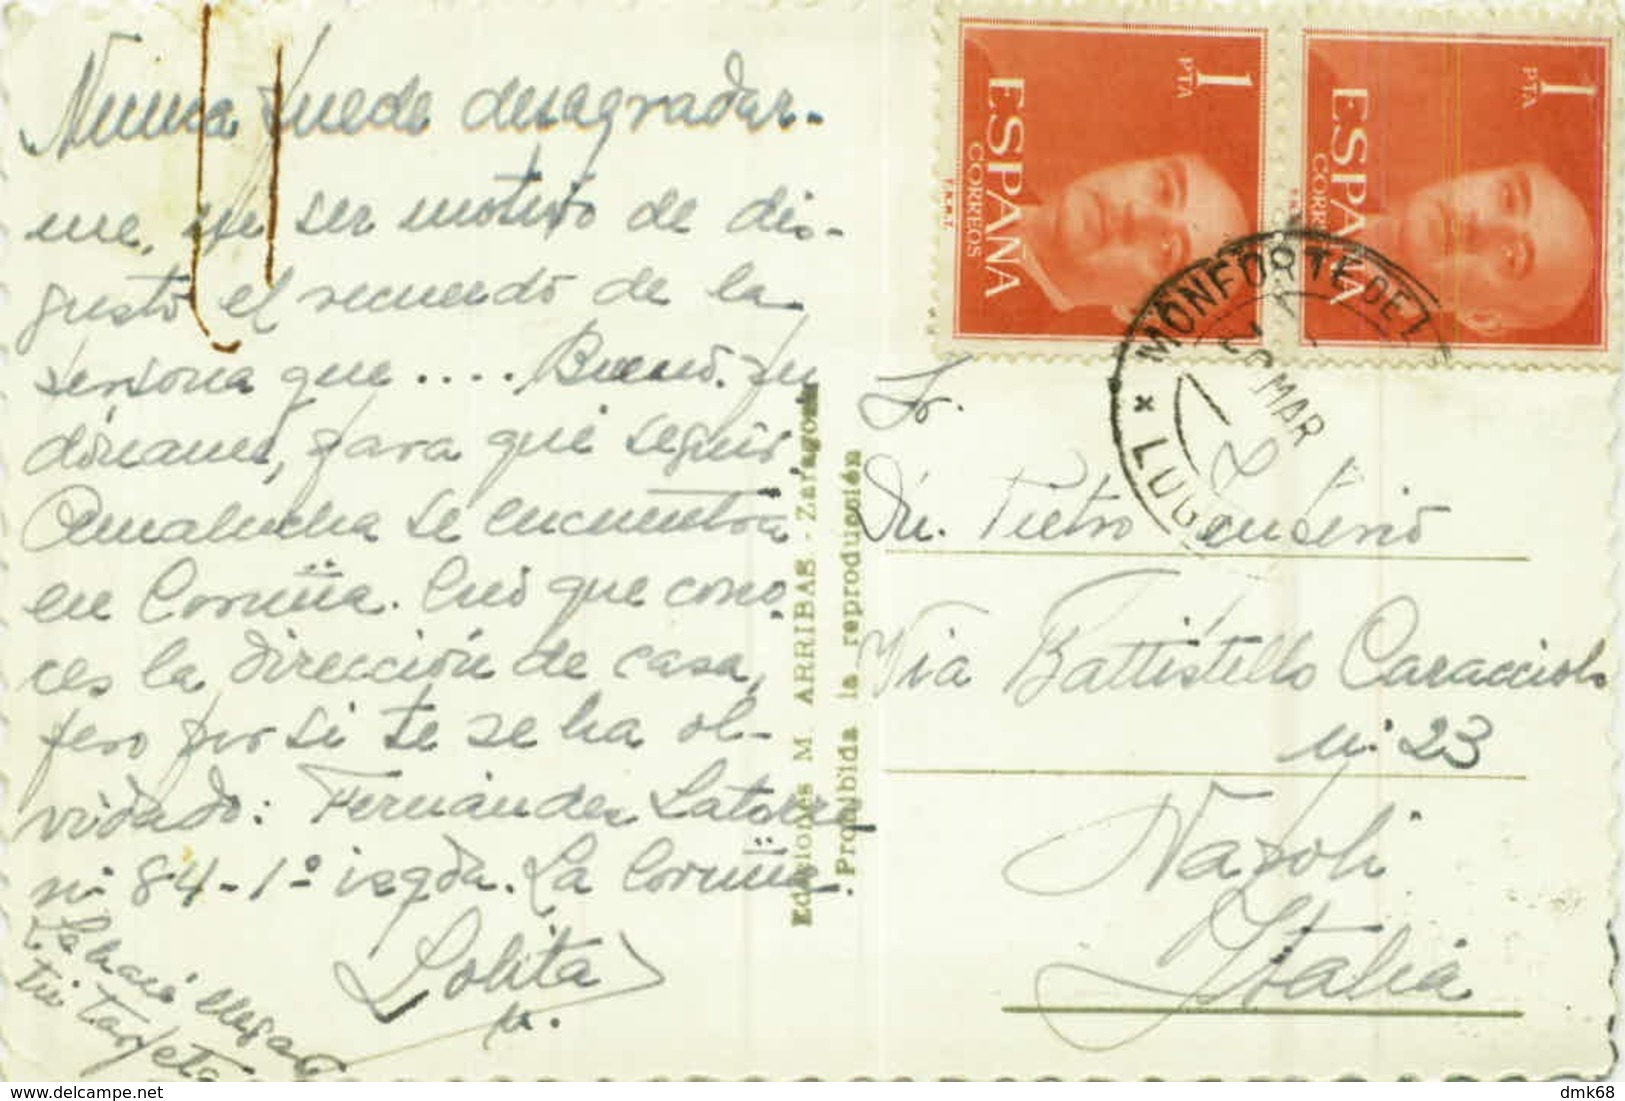 Nunca puede desagradar-
me, ni ser motivo de dis-
gusto el recuerdo de la
persona que .... Bueno.
para que seguir
Amalucha se encuentra
en Coruña. Creo que cono,
ces la dirección de casa,
pero por si te se ha ol-
vidado: Fernández Latorre
nº 84-1º izqda. La Coruña.
Lolita
La haré llegar
tu tarjeta
Ediciones M. ARRIBAS - Zaragoza
Prohibida la reproducción
1 PTA
ESPAÑA
CORREOS
1 PTA
ESPAÑA
CORREOS
MONFORTE DE L
MAR
LUGO
Sr.
Dn. Pietro
Via Battistello Caracciolo
nº 23
Napoli
Italia
delcampe.net
dmk68